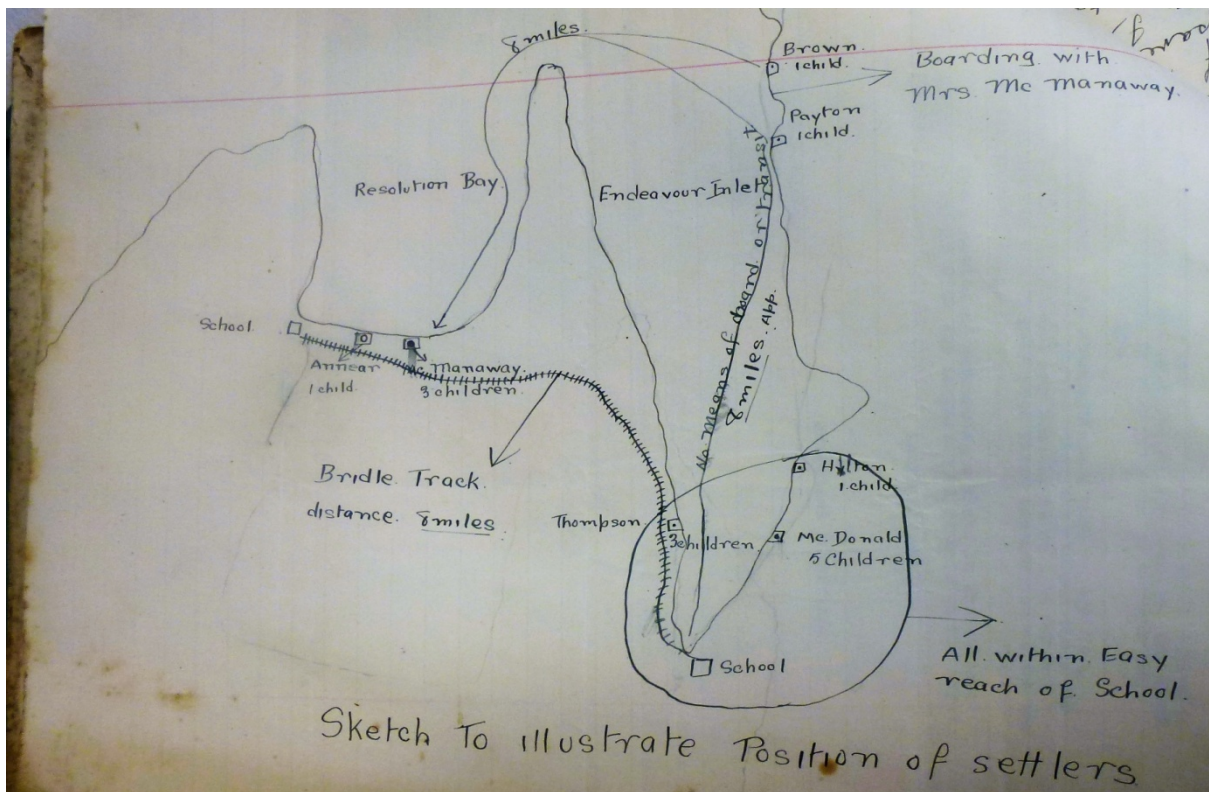 8 miles.
Brown.
1 child.
Boarding with
Mrs. Mc Manaway.
Payton
1 child.
Resolution Bay.
Endeavour Inlet
No Means of board or transit
8 miles. App.
School.
Annear
1 child.
Mc Manaway.
3 children.
Bridle Track.
distance. 8 miles
Thompson
3 children.
Hilton.
1. child.
Mc. Donald
5 Children
School
All within Easy
reach of School.
Sketch To illustrate Position of settlers